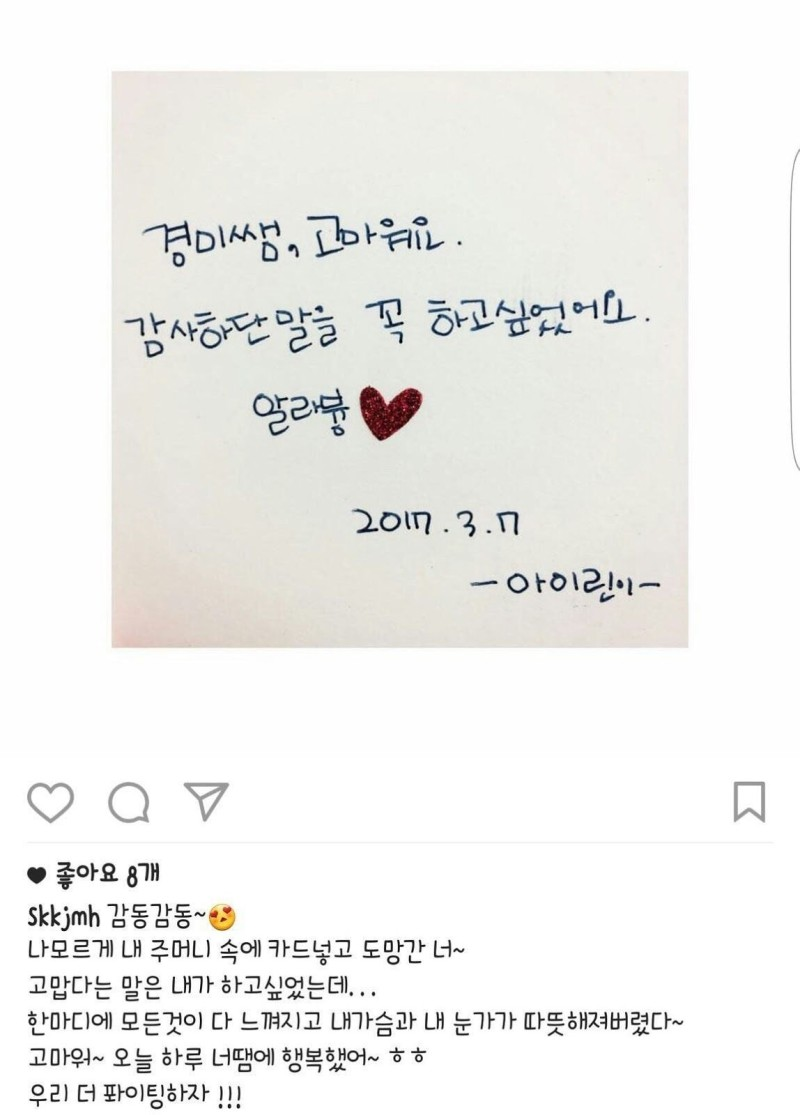 경미쌤, 고마워요.
감사하단 말을 꼭 하고싶었어요.
알라븅
2017.3.7
-아이린이-
좋아요 8개
skkjmh 감동감동~
나모르게 내 주머니 속에 카드넣고 도망간 너~
고맙다는 말은 내가 하고싶었는데...
한마디에 모든것이 다 느껴지고 내가슴과 내 눈가가 따뜻해져버렸다~
고마워~ 오늘 하루 너땜에 행복했어~ ㅎㅎ
우리 더 퐈이팅하자 !!!